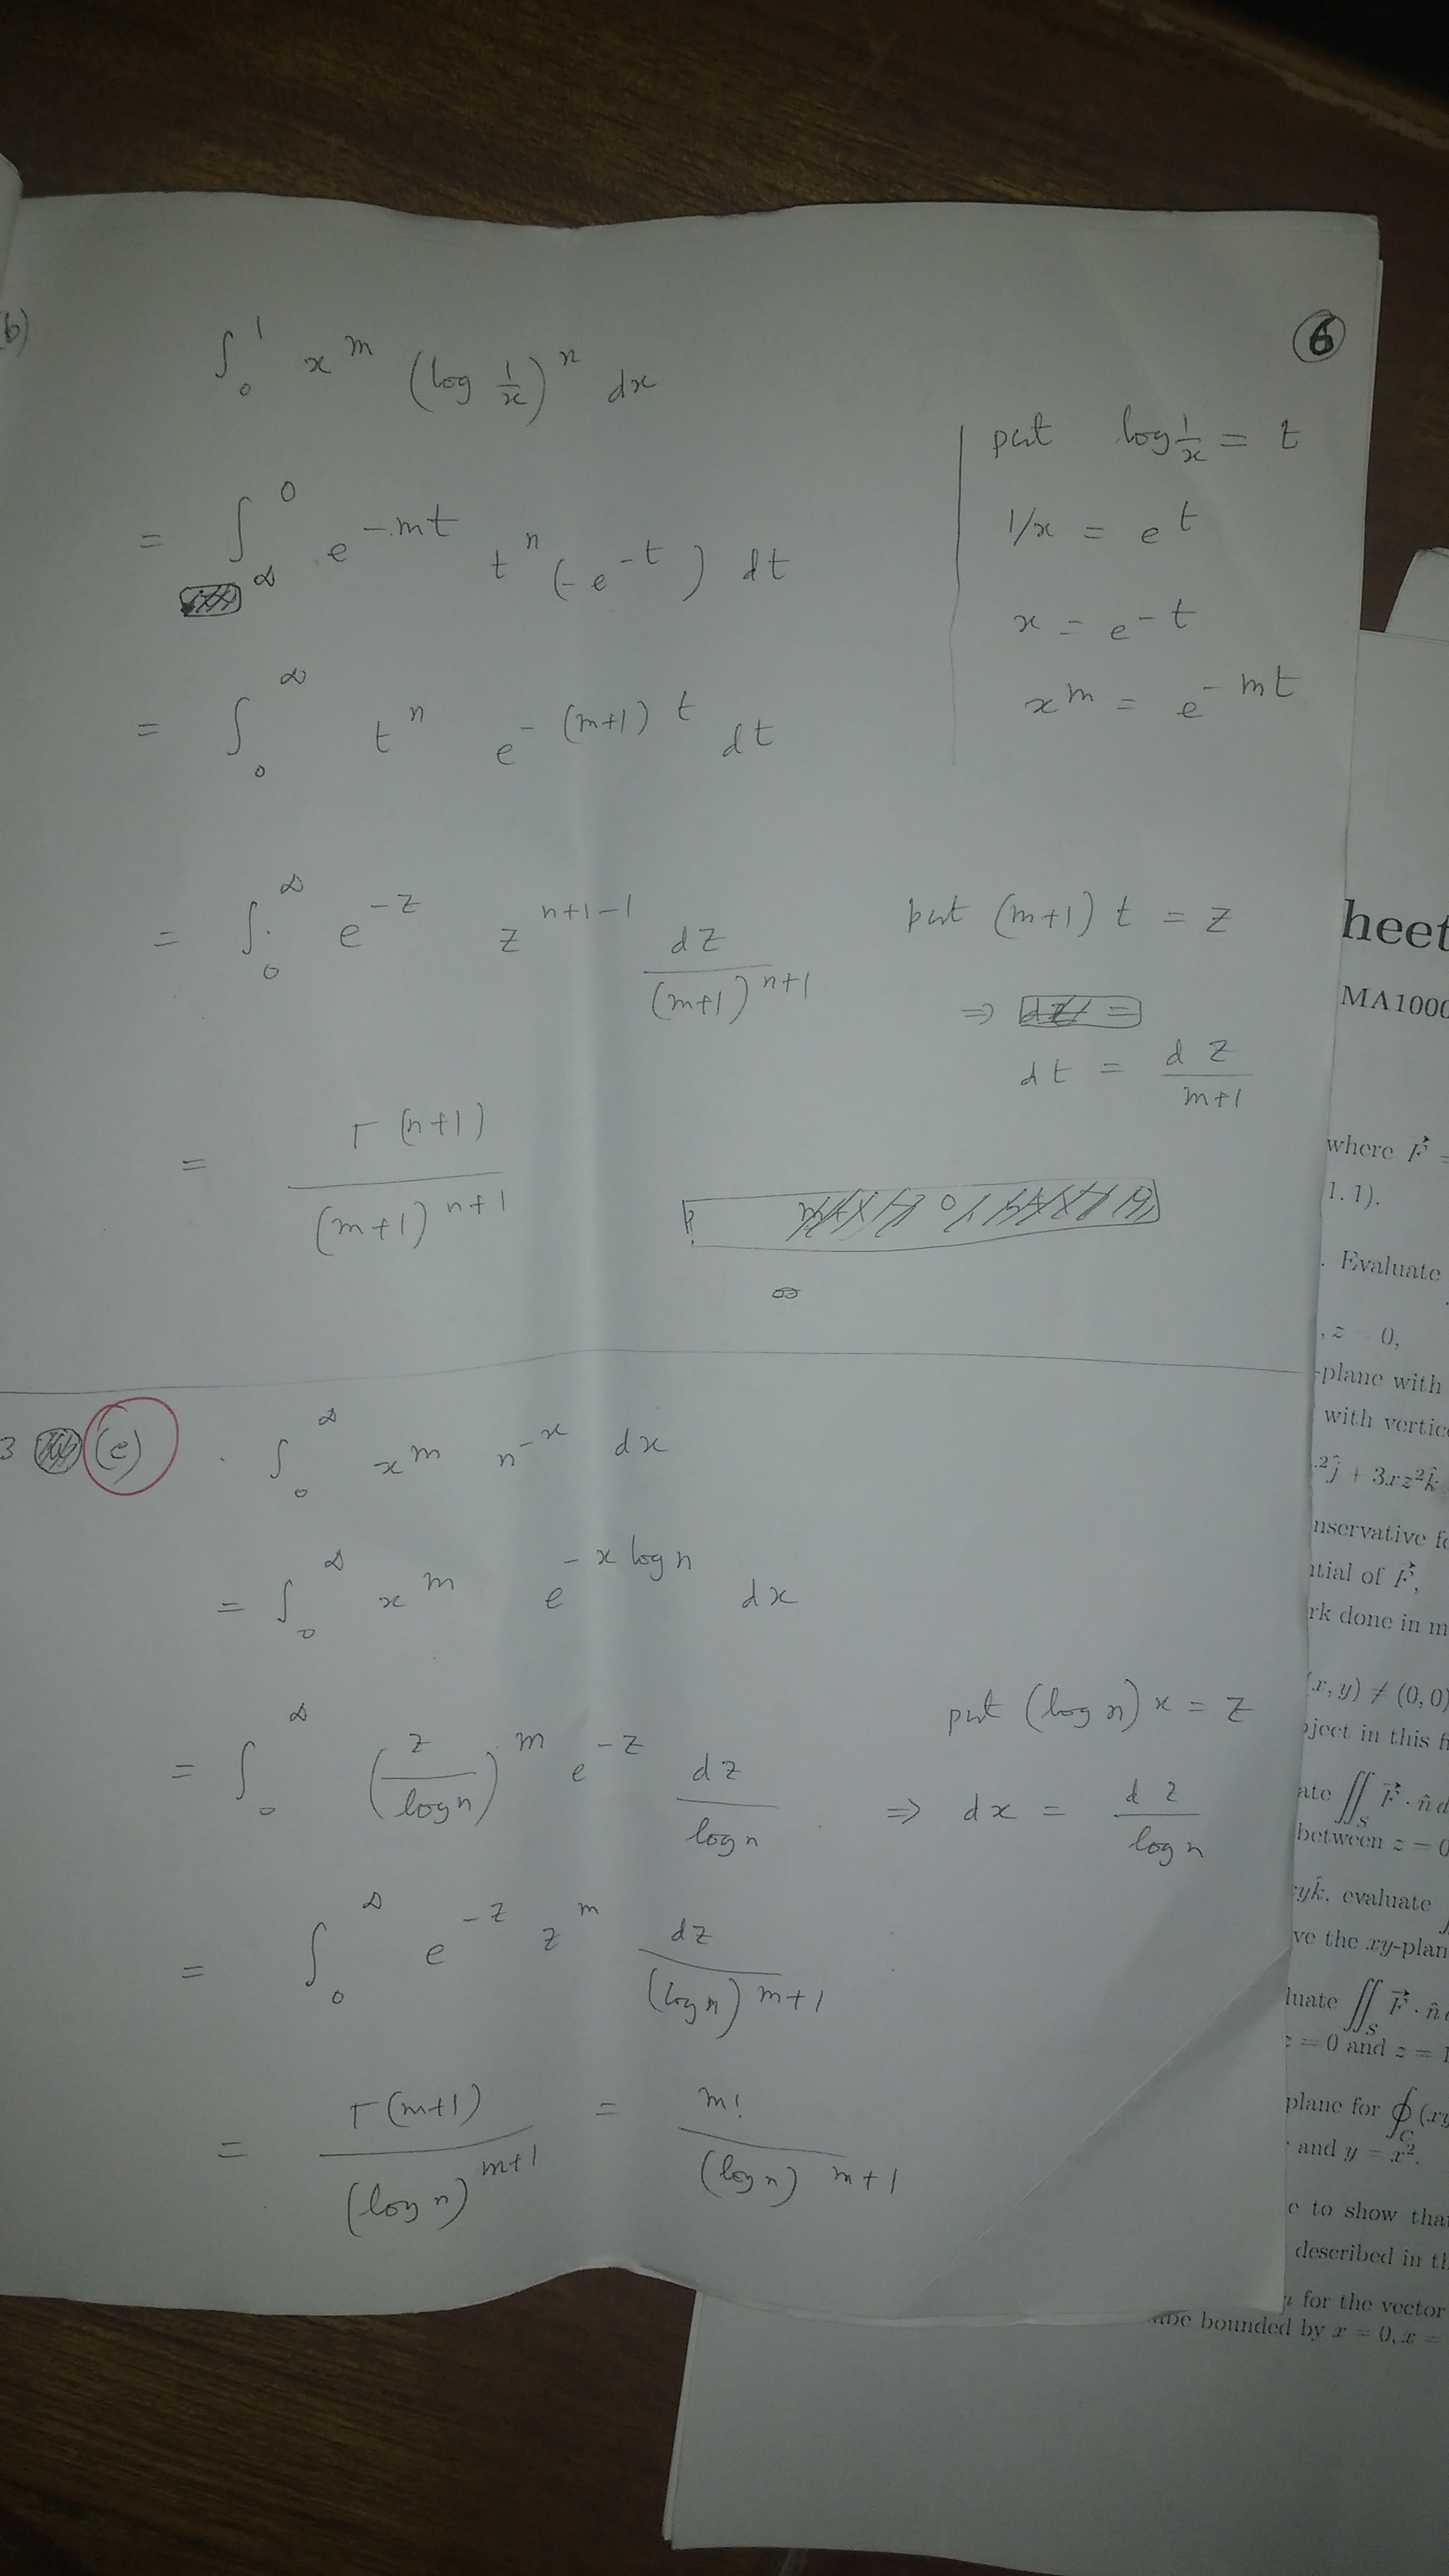 b)
6
∫₀¹ xᵐ (log 1/x)ⁿ dx
put log 1/x = t
= ∫_∞^0 e^{-mt} tⁿ (-e^{-t}) dt
1/x = e^t
x = e^{-t}
= ∫_0^∞ tⁿ e^{-(m+1)t} dt
xᵐ = e^{-mt}
= ∫_0^∞ e^{-z} z^{n+1-1} dz/(m+1)^{n+1}
put (m+1) t = z
⇒
dt = dz/(m+1)
= Γ(n+1)/(m+1)^{n+1}
3 (e) ∫_0^∞ xᵐ n^{-x} dx
= ∫_0^∞ xᵐ e^{-x log n} dx
put (log n) x = z
= ∫_0^∞ (z/log n)^m e^{-z} dz/log n
⇒ dx = dz/log n
= ∫_0^∞ e^{-z} z^m dz/(log n)^{m+1}
= Γ(m+1)/(log n)^{m+1} = m!/(log n)^{m+1}
heet
MA1000
where F⃗ =
1, 1).
. Evaluate
, z = 0,
-plane with
with vertice
²ĵ + 3xz²k̂
nservative fo
ntial of F⃗,
rk done in m
(x, y) ≠ (0, 0)
bject in this fi
ate ∬_S F⃗ · n̂ d
between z = 0
yk̂, evaluate
ve the xy-plan
luate ∬_S F⃗ · n̂
= 0 and z = 1
plane for ∮_C (xy
and y = x².
e to show that
described in th
for the vector
bounded by x = 0, x =